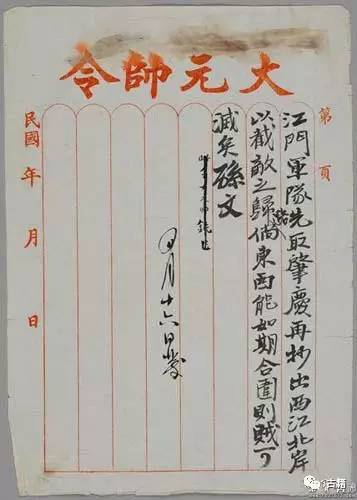 大元帥令
第 頁
江門軍隊先取肇慶再抄出西江北岸
以截敵之歸路倘東西能如期合圍則賊可
滅矣孫文
四月十六日發
民國 年 月 日
古籍